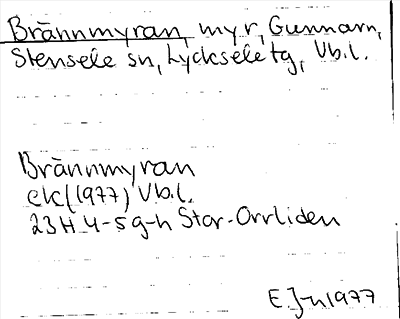 Brännmyran, myr, Gunnarn,
Stensele sn, Lycksele tg, Vb.l.
Brännmyran
ek (1977) Vb.l.
23H 4-5 g-h Stor-Orrliden
E. J-n 1977